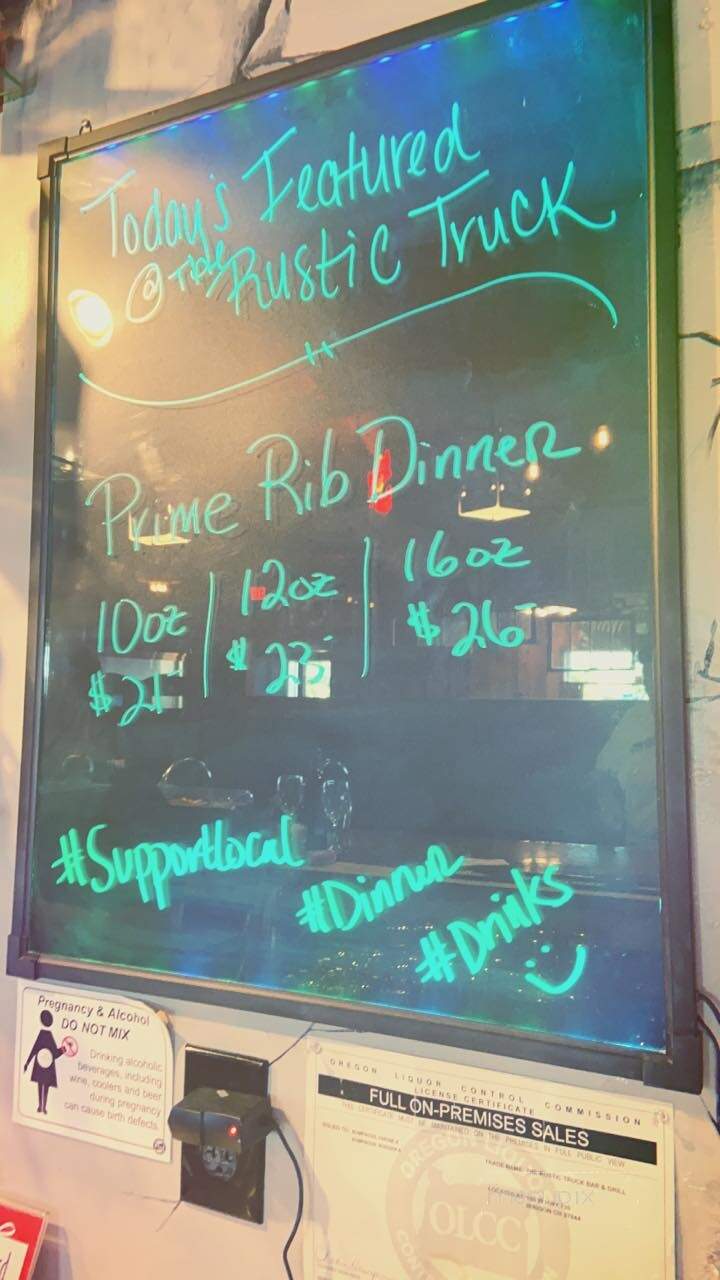 Today's Featured
@ The Rustic Truck
Prime Rib Dinner
10oz | 12oz | 16oz
$21- $23- $26-
#SupportLocal
#Dinner
#Drinks
Pregnancy & Alcohol
DO NOT MIX
Drinking alcoholic
beverages, including
wine, coolers and beer
during pregnancy
can cause birth defects.
OREGON LIQUOR CONTROL COMMISSION
LICENSE CERTIFICATE
FULL ON-PREMISES SALES
THIS CERTIFICATE MUST BE MAINTAINED ON THE PREMISES IN FULL PUBLIC VIEW
ISSUED TO:
TRADE NAME: THE RUSTIC TRUCK BAR & GRILL
LOCATED AT:
OLCC